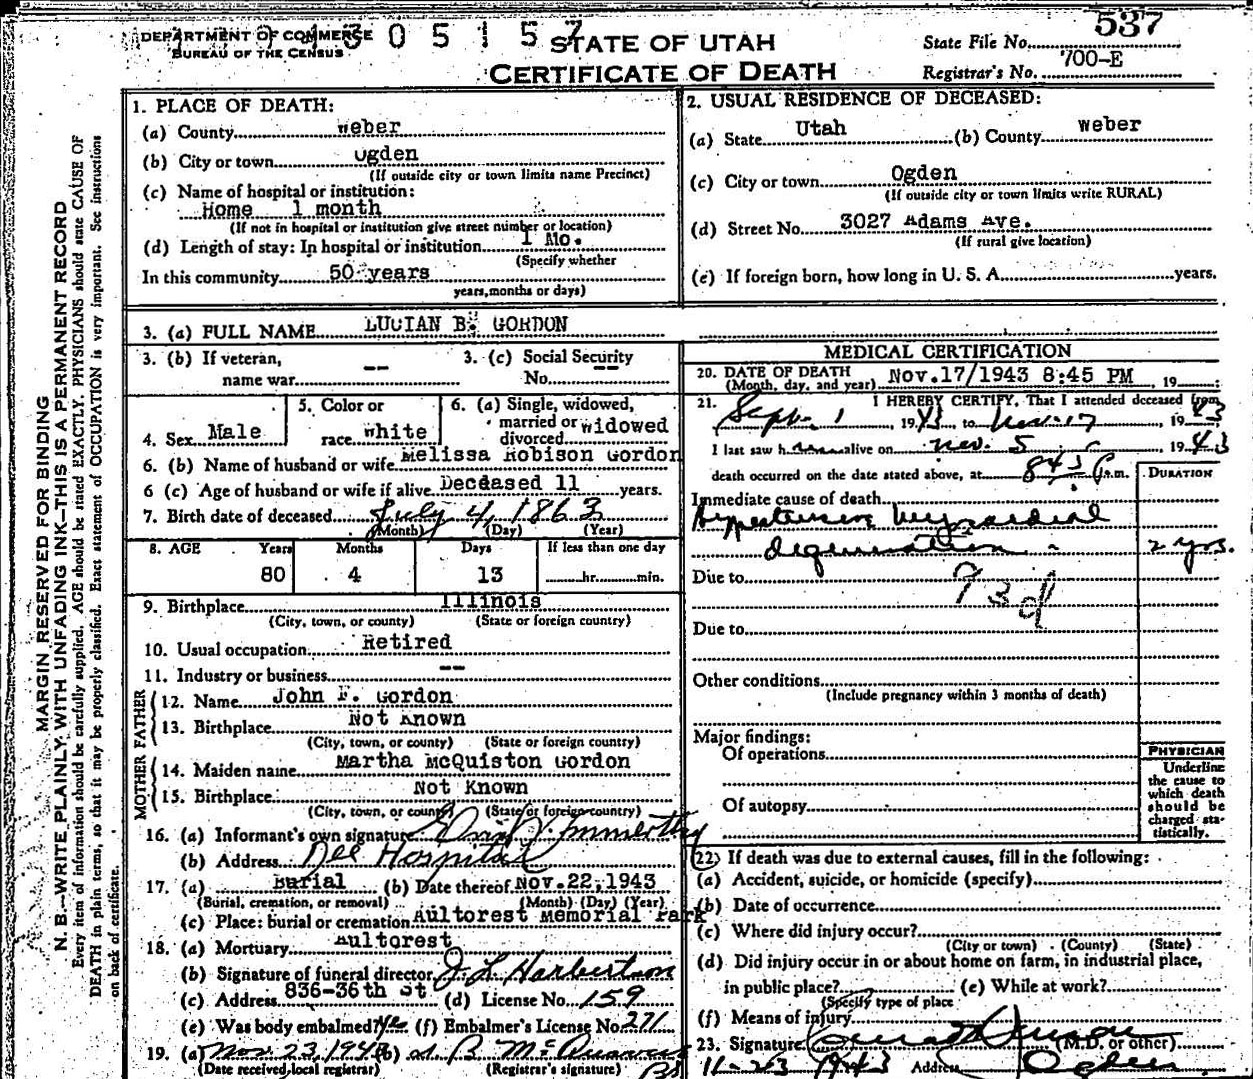 DEPARTMENT OF COMMERCE
BUREAU OF THE CENSUS
3 0 5 1 5 7
STATE OF UTAH
CERTIFICATE OF DEATH
State File No. 537
Registrar's No. 700-E
MARGIN RESERVED FOR BINDING
N. B.—WRITE PLAINLY, WITH UNFADING INK—THIS IS A PERMANENT RECORD
Every item of information should be carefully supplied. AGE should be stated EXACTLY. PHYSICIANS should state CAUSE OF
DEATH in plain terms, so that it may be properly classified. Exact statement of OCCUPATION is very important. See instructions
on back of certificate.
1. PLACE OF DEATH:
(a) County Weber
(b) City or town Ogden
(If outside city or town limits name Precinct)
(c) Name of hospital or institution:
Home 1 month
(If not in hospital or institution give street number or location)
(d) Length of stay: In hospital or institution 1 Mo.
(Specify whether
In this community 50 years
years, months or days)
2. USUAL RESIDENCE OF DECEASED:
(a) State Utah (b) County Weber
(c) City or town Ogden
(If outside city or town limits write RURAL)
(d) Street No. 3027 Adams Ave.
(If rural give location)
(e) If foreign born, how long in U. S. A. years.
3. (a) FULL NAME LUCIAN B. GORDON
3. (b) If veteran,
name war --
3. (c) Social Security
No. --
4. Sex Male
5. Color or
race white
6. (a) Single, widowed,
married or
divorced widowed
6. (b) Name of husband or wife Melissa Robison Gordon
6 (c) Age of husband or wife if alive Deceased 11 years.
7. Birth date of deceased July 4, 1863
(Month) (Day) (Year)
8. AGE Years Months Days If less than one day
80 4 13 hr. min.
9. Birthplace Illinois
(City, town, or county) (State or foreign country)
10. Usual occupation Retired
11. Industry or business --
FATHER
12. Name John F. Gordon
13. Birthplace Not Known
(City, town, or county) (State or foreign country)
MOTHER
14. Maiden name Martha McQuiston Gordon
15. Birthplace Not Known
(City, town, or county) (State or foreign country)
16. (a) Informant's own signature
(b) Address Dee Hospital
17. (a) Burial (b) Date thereof Nov. 22, 1943
(Burial, cremation, or removal) (Month) (Day) (Year)
(c) Place: burial or cremation Aultorest Memorial Park
18. (a) Mortuary Aultorest
(b) Signature of funeral director J L Harbertson
(c) Address 836-36th St (d) License No. 159
(e) Was body embalmed? Yes (f) Embalmer's License No. 271
19. (a) Nov 23, 1943 (b)
(Date received local registrar) (Registrar's signature)
MEDICAL CERTIFICATION
20. DATE OF DEATH
(Month, day, and year) Nov.17/1943 8:45 PM, 19
21. I HEREBY CERTIFY, That I attended deceased from
Sept. 1 1943, to Nov. 17 1943
I last saw h alive on Nov. 5 1943
death occurred on the date stated above, at 845 P.m.
DURATION
Immediate cause of death
Hypertension Myocardial
degeneration 2 yrs.
Due to 93d
Due to
Other conditions
(Include pregnancy within 3 months of death)
Major findings:
Of operations
Of autopsy
PHYSICIAN
Underline
the cause to
which death
should be
charged sta-
tistically.
22) If death was due to external causes, fill in the following:
(a) Accident, suicide, or homicide (specify)
(b) Date of occurrence
(c) Where did injury occur?
(City or town) (County) (State)
(d) Did injury occur in or about home on farm, in industrial place,
in public place? (e) While at work?
(Specify type of place
(f) Means of injury
23. Signature (M.D. or other)
11-23 1943 Address Ogden